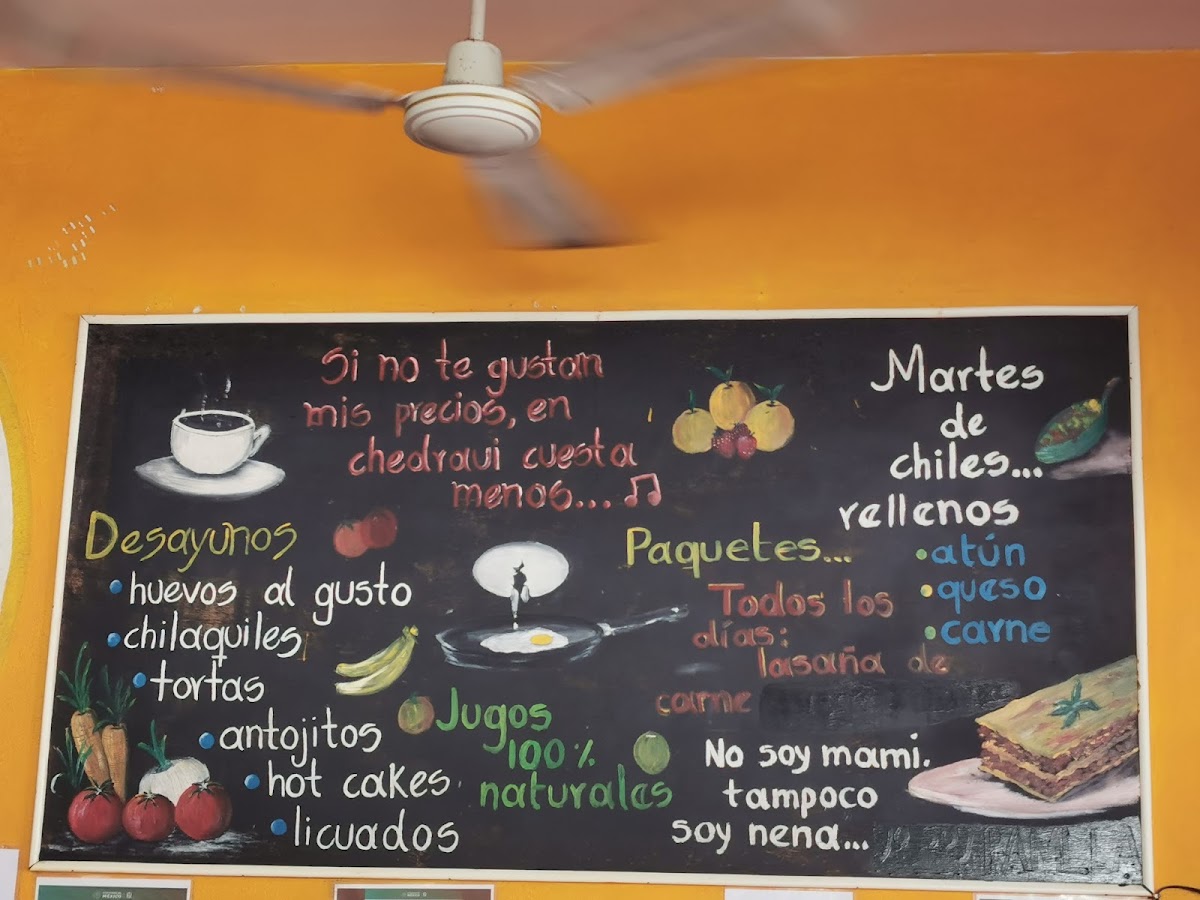 Si no te gustan
mis precios, en
chedraui cuesta
menos...
Martes
de
chiles...
rellenos
• atún
• queso
• carne
Desayunos
• huevos al gusto
• chilaquiles
• tortas
• antojitos
• hot cakes
• licuados
Jugos
100%
naturales
Paquetes...
Todos los
días:
lasaña de
carne
No soy mami.
tampoco
soy nena...